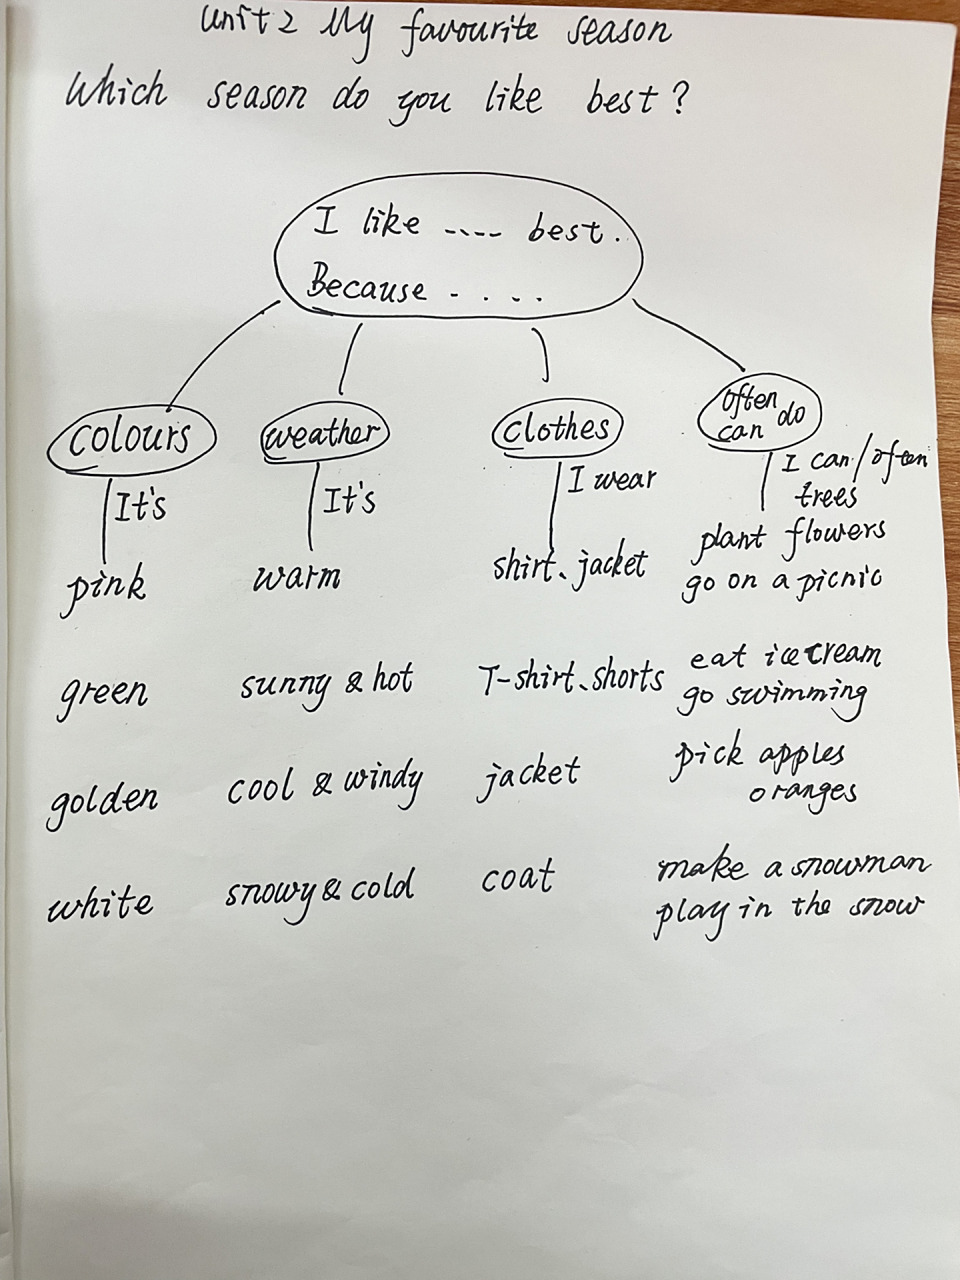 Unit 2 My favourite season
Which season do you like best?
I like ---- best.
Because . . . .
colours
weather
clothes
often do
can
It's
It's
I wear
I can/often
trees
plant flowers
pink
warm
shirt、jacket
go on a picnic
green
sunny & hot
T-shirt、shorts
eat ice cream
go swimming
golden
cool & windy
jacket
pick apples
oranges
white
snowy & cold
coat
make a snowman
play in the snow